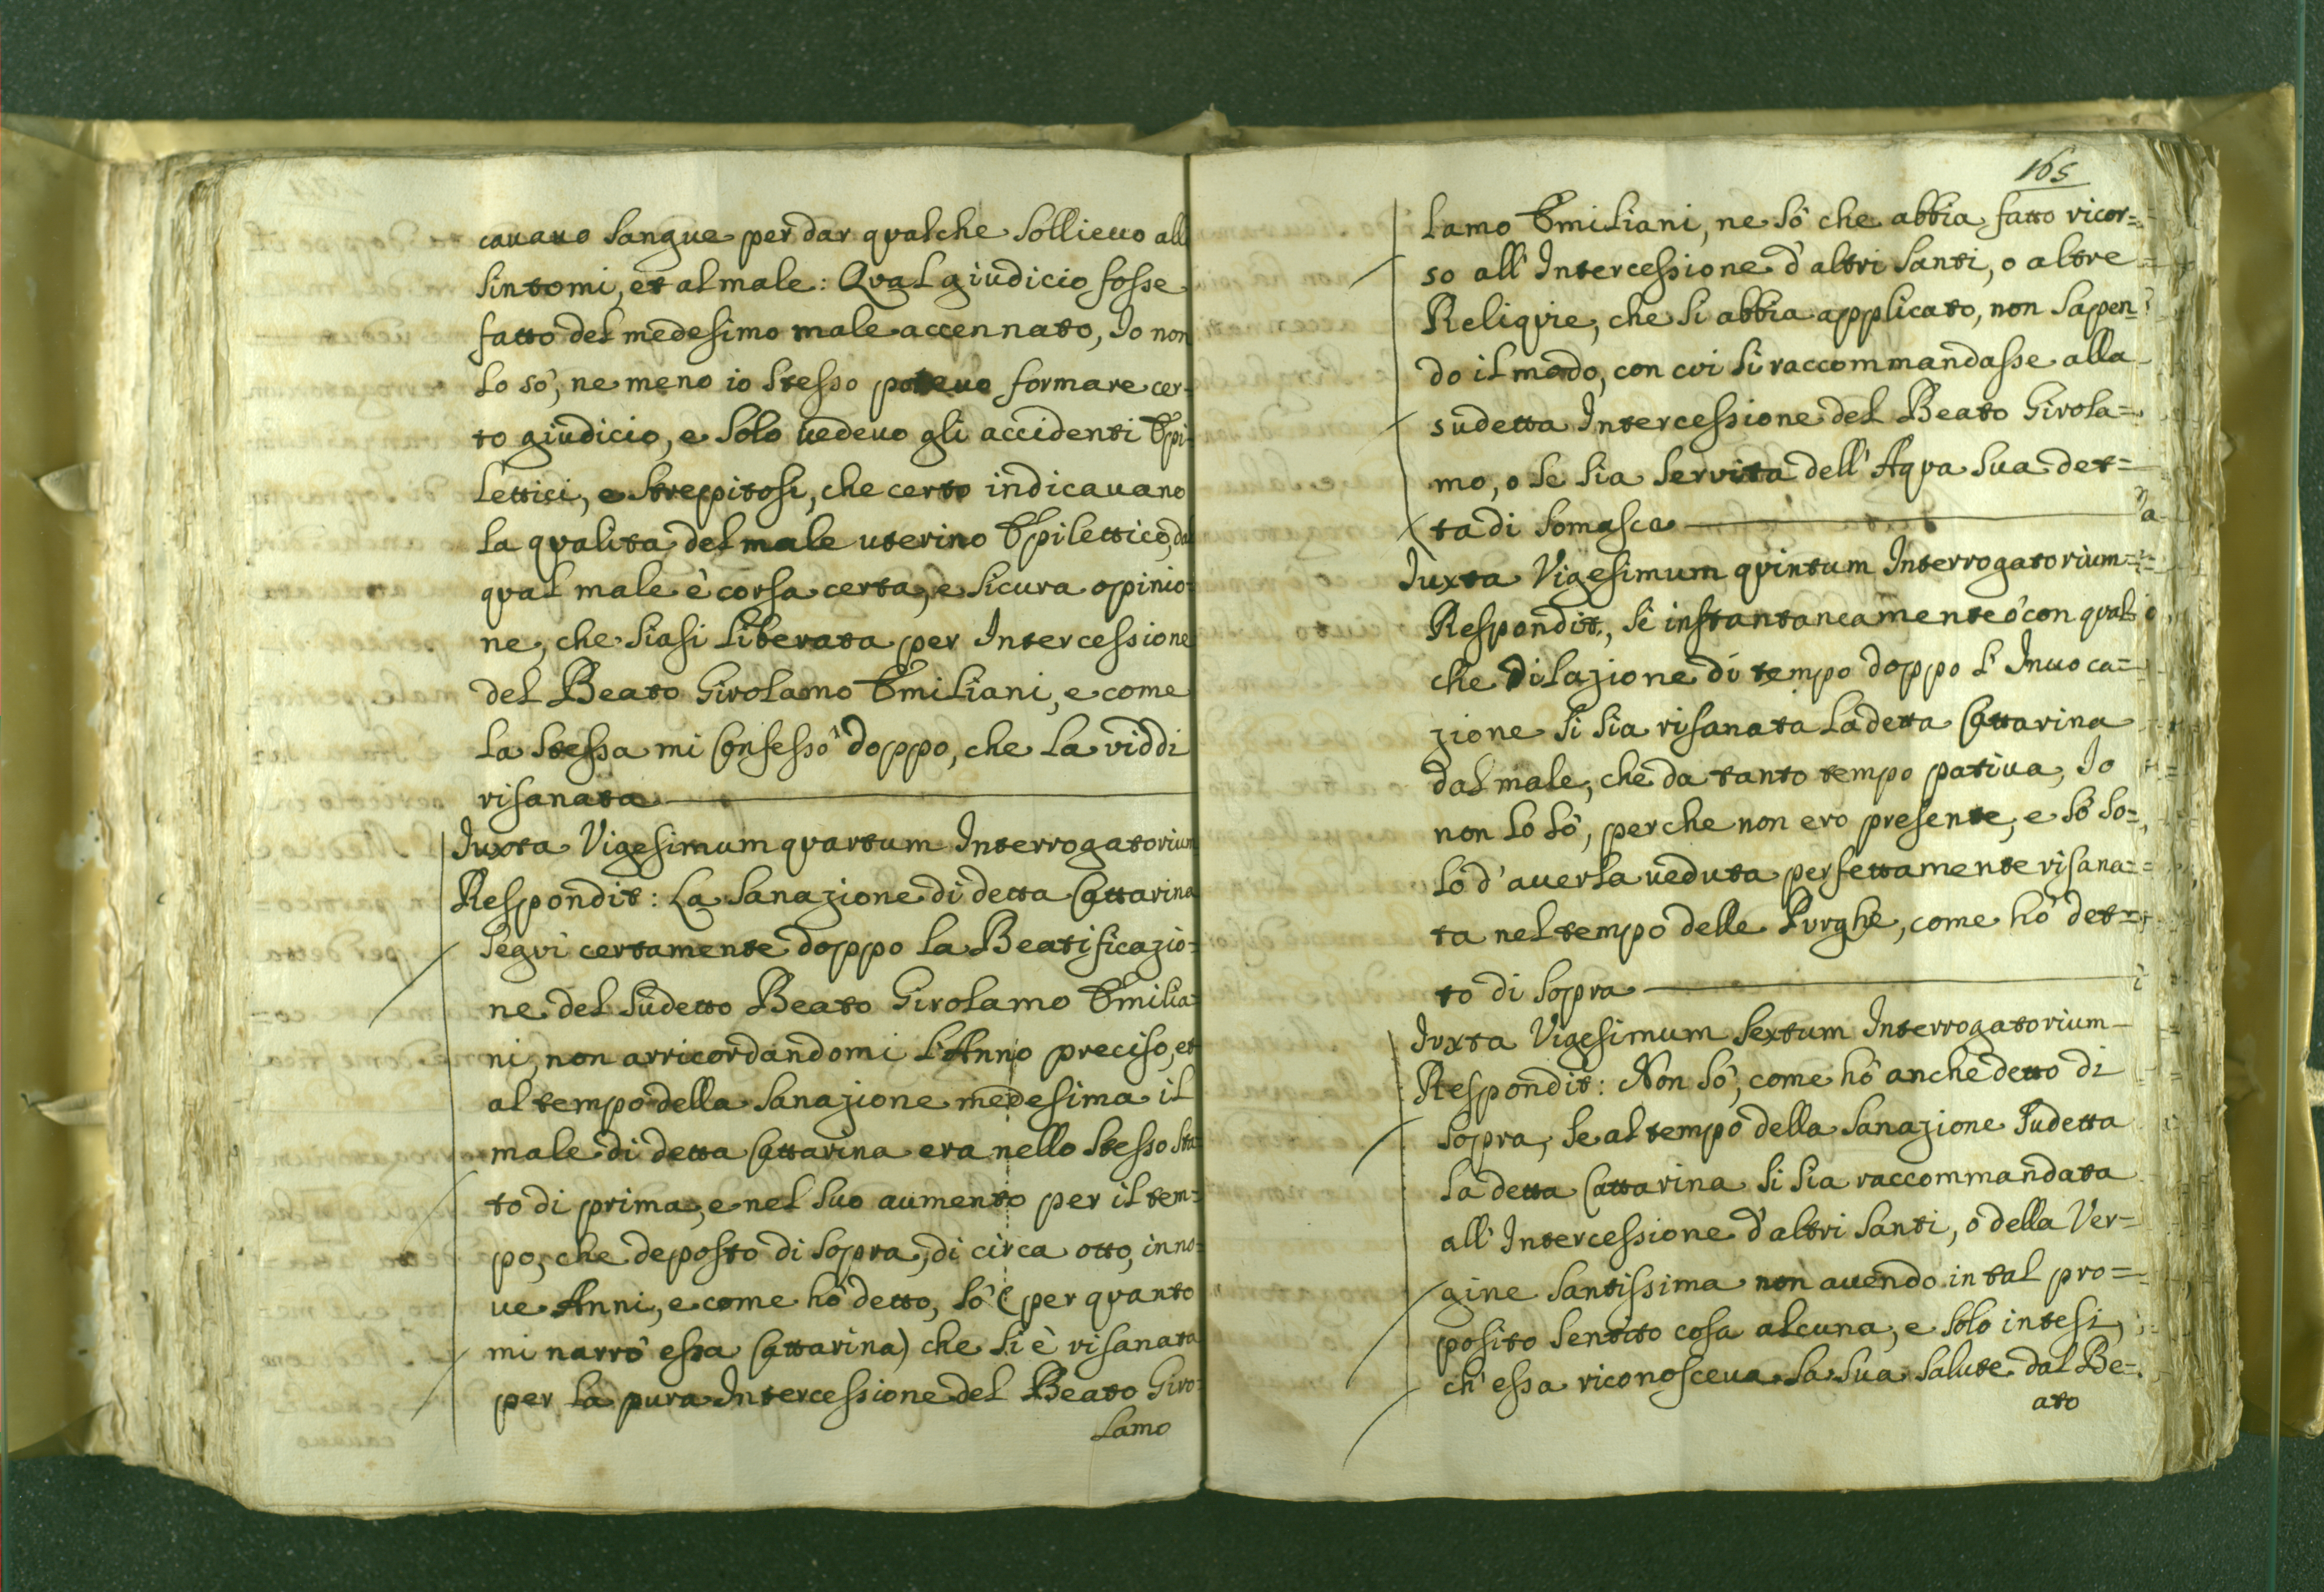 cavavo sangue per dar qualche sollievo alli
sintomi, et al male: Qual giudicio fosse
fatto del medesimo male accennato, Io non
lo sò, ne meno io stesso potevo formare cer-
to giudicio, e solo vedevo gli accidenti Epi-
lettici, e strepitosi, che certo indicavano
la qualita del male uterino Epilettico, dal
qual male è corsa certa, e sicura opinio-
ne, che siasi liberata per Intercessione
del Beato Girolamo Emiliani, e come
la stessa mi Confessò doppo, che la viddi
risanata
Iuxta Vigesimum quartum Interrogatorium
Respondit: La sanazione di detta Cattarina
seguì certamente doppo la Beatificazio-
ne del sudetto Beato Girolamo Emilia-
ni, non arricordandomi l'Anno preciso, et
al tempo della sanazione medesima il
male di detta Cattarina era nello stesso sta-
to di prima, e nel suo aumento per il tem-
po, che deposto di sopra, di circa otto, in no-
ve Anni, e come hò detto, sò (per quanto
mi narrò essa Cattarina) che si è risanata
per la pura Intercessione del Beato Giro-
lamo
165
lamo Emiliani, ne sò che abbia fatto ricor=
so all' Intercessione d'altri Santi, o altre
Reliquie, che si abbia applicato, non sapen=
do il modo, con cui si raccommandasse alla
sudetta Intercessione del Beato Girola=
mo, o se sia servita dell' Aqua sua det=
ta di Somasca
Iuxta Vigesimum quintum Interrogatorium
Respondit, se instantaneamente ò con qual
che dilazione di tempo doppo l' Invoca=
zione si sia risanata la detta Cattarina
dal male, che da tanto tempo pativa, Io
non lo sò, perche non ero presente, e sò so=
lo d'averla veduta perfettamente risana=
ta nel tempo delle Purghe, come hò det=
to di sopra
Iuxta Vigesimum sextum Interrogatorium
Respondit: Non sò, come hò anche detto di
sopra, se al tempo della sanazione sudetta
la detta Cattarina si sia raccommandata
all' Intercessione d'altri Santi, ò della Ver=
gine Santissima non avendo in tal pro=
posito sentito cosa alcuna, e solo intesi,
ch' essa riconosceva la sua salute dal Be=
ato